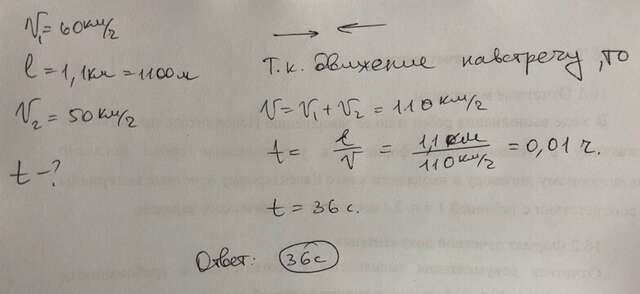 V₁ = 60 км/ч
l = 1,1 км = 1100 м
V₂ = 50 км/ч
t - ?
Т.к. движение навстречу, то
V = V₁ + V₂ = 110 км/ч
t = l/V = 1,1 км/110 км/ч = 0,01 ч.
t = 36 с.
Ответ: 36с